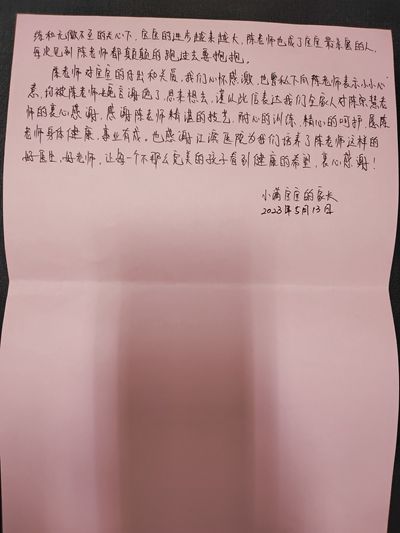 练和无微不至的关心下，宝宝的进步越来越大，陈老师也成了宝宝最亲属的人，
每次见到陈老师都颠颠的跑过去要抱抱。
陈老师对宝宝的付出和关爱，我们心怀感激，也曾私下向陈老师表示小小心
意，均被陈老师婉言谢绝了，思来想去，谨以此信表达我们全家人对陈
老师的衷心感谢，感谢陈老师精湛的技艺，耐心的训练，精心的呵护，愿陈
老师身体健康，事业有成。也感谢江滨医院为我们培养了陈老师这样的
好医生，好老师，让每一个不那么完美的孩子看到健康的希望，衷心感谢！
小满宝宝的家长
2023年5月13日